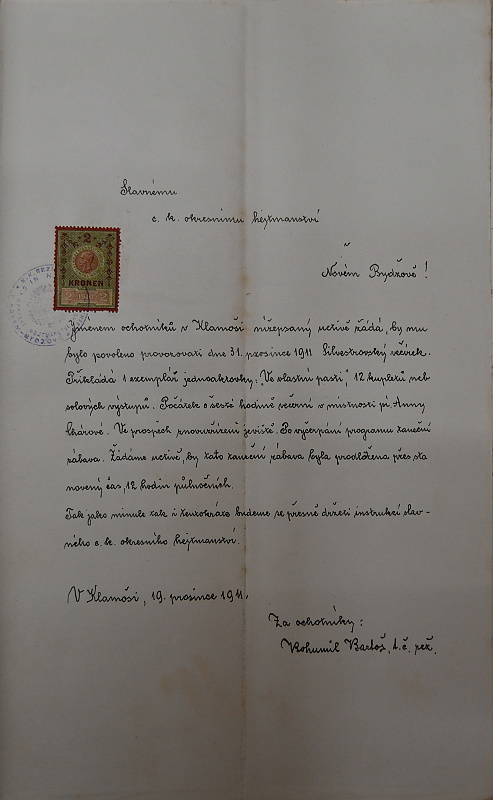 Slavnému
c. k. okresnímu hejtmanství
v
Novém Bydžově!
2
KRONEN
Jménem ochotníků v Klamoši nížepsaný uctivě žádá, by mu
bylo povoleno provozovati dne 31. prosince 1911 Silvestrovský večírek.
Přikládá 1 exemplář jednoaktovky: "Ve vlastní pasti", 12 kupletů neb
solových výstupů. Počátek o šesté hodině večerní v místnosti pí. Anny
Ve prospěch znovuzřízení jeviště. Po vyčerpání programu taneční
zábava. Žádáme uctivě, by tato taneční zábava byla prodloužena přes sta
novený čas, 12 hodin půlnočních.
Tak jako minule tak i tentokráte budeme se přesně držeti instrukcí slav-
ného c. k. okresního hejtmanství.
V Klamoši, 19. prosince 1911.
Za ochotníky:
Bohumil Bartoš, t. č. rež.